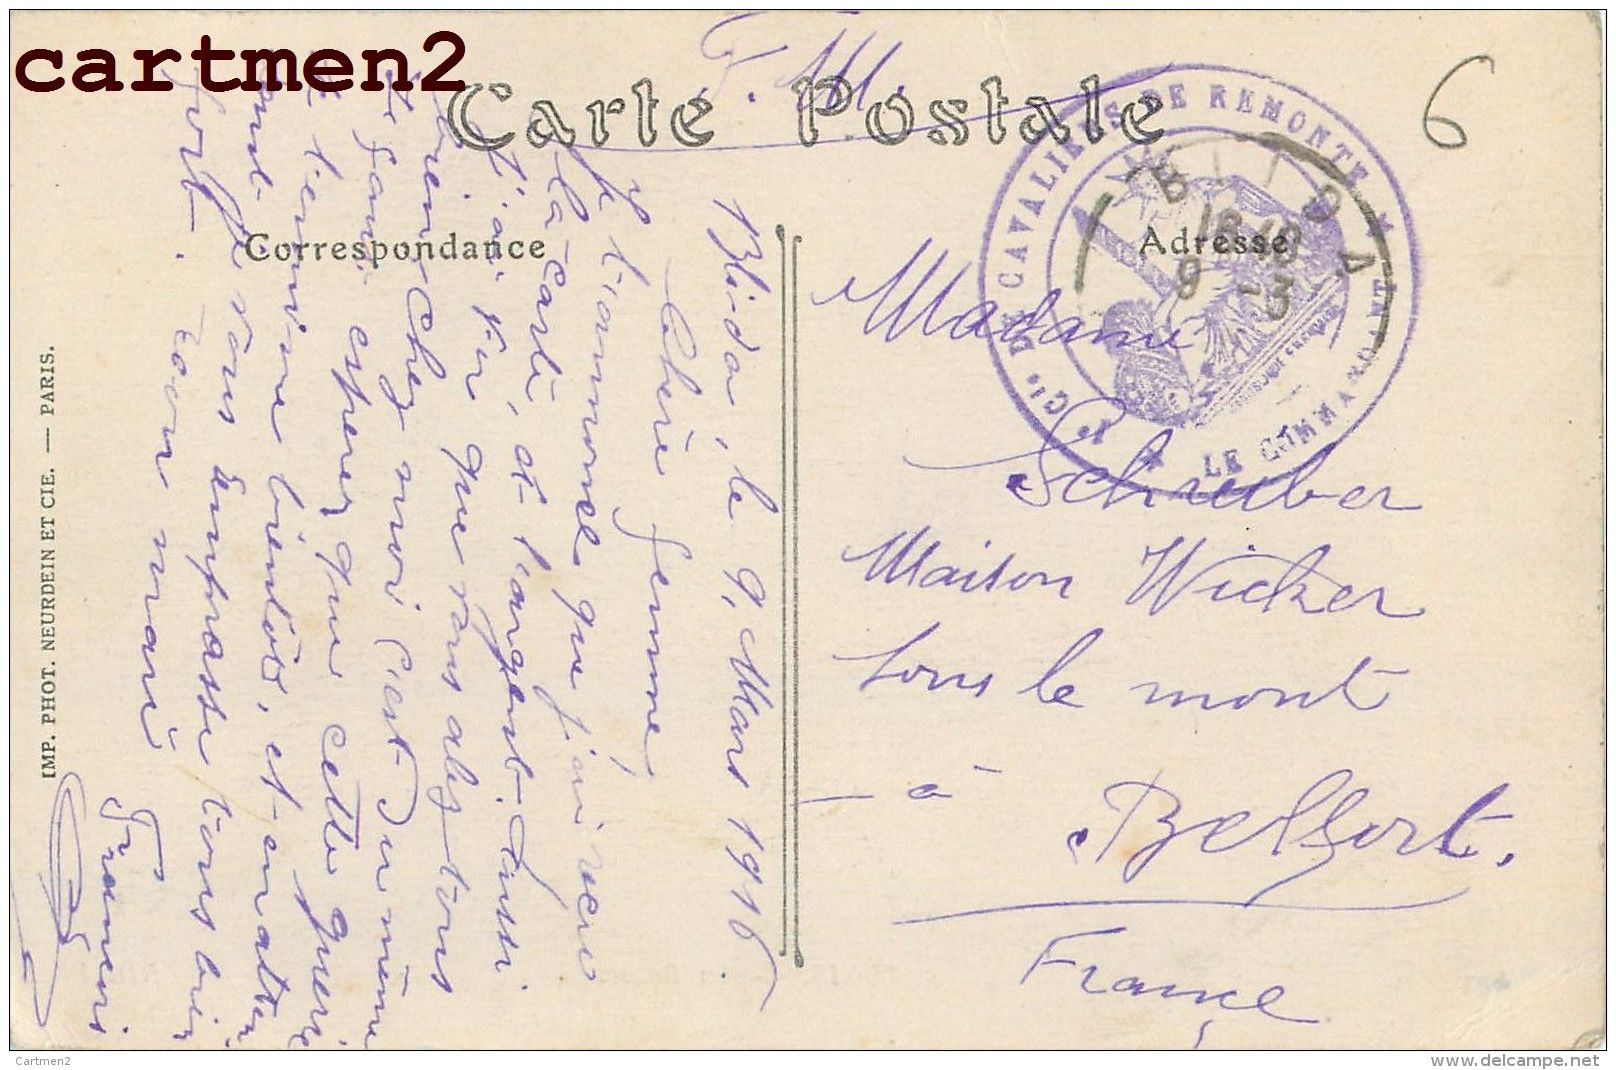 cartmen2
F. M.
Carte Postale
6
Correspondance
Adresse
Cie DE CAVALIERS DE REMONTE
LE COMMANDANT
BLIDA
9 -3
IMP. PHOT. NEURDEIN ET CIE. — PARIS.
Blida, le 9, Mars 1916.
Chère femme,
Je t'annonce que j'ai reçu
la carte, et l'argent. Aussi
j'ai vu que vous alez tous
bien Chez moi c'est du même
Il faut esperer que cette guerre
se termine bientôt, et en atten
dant je vous embrasse tous bien
fort. Ton mari
Francois
Madame
Schreiber
Maison Wicker
Sous le mont
- à Belfort.
France
Cartmen2
www.delcampe.net